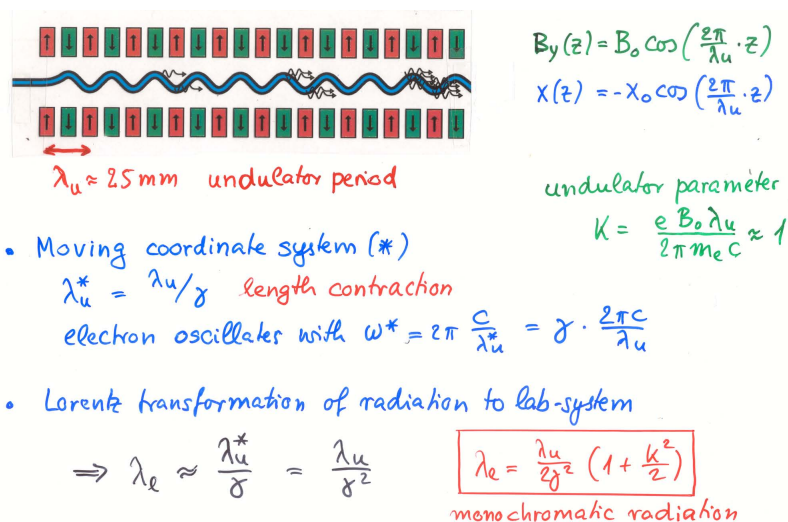 ↑ ↓ ↑ ↓ ↑ ↓ ↑ ↓ ↑ ↓ ↑ ↓ ↑ ↓ ↑ ↓ ↑ ↓ ↑ ↓
↑ ↓ ↑ ↓ ↑ ↓ ↑ ↓ ↑ ↓ ↑ ↓ ↑ ↓ ↑ ↓ ↑ ↓ ↑ ↓
B_y(z) = B_0 cos(2π/λ_u · z)
x(z) = -x_0 cos(2π/λ_u · z)
λ_u ≈ 25 mm undulator period
undulator parameter
K = e B_0 λ_u / 2π m_e c ≈ 1
• Moving coordinate system (*)
λ_u^* = λ_u/γ length contraction
electron oscillates with ω* = 2π c/λ_u^* = γ · 2πc/λ_u
• Lorentz transformation of radiation to lab-system
⇒ λ_e ≈ λ_u^*/γ = λ_u/γ²
λ_e = λ_u/2γ² (1 + K²/2)
monochromatic radiation